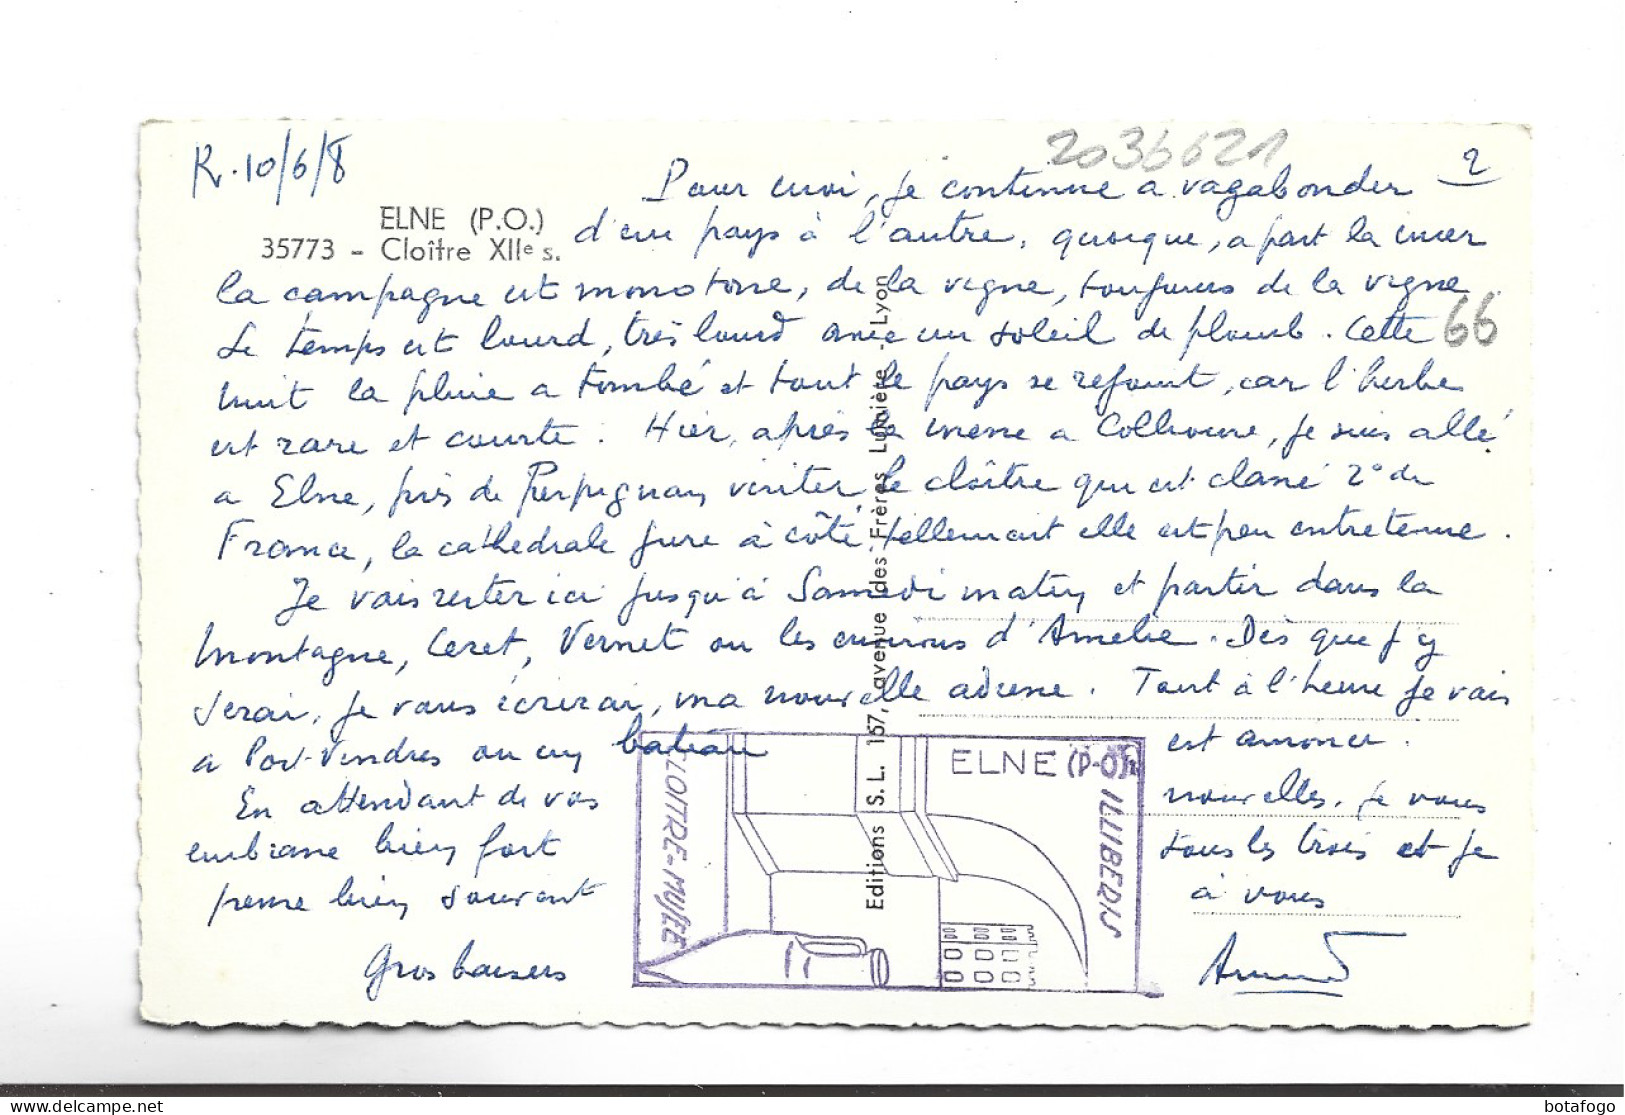 R. 10/6/8
2036621
2
ELNE (P.O.)
35773 - Cloître XIIe s.
Pour moi, je continue a vagabonder
d'un pays à l'autre, quoique, a part la mer
la campagne est monotone, de la vigne, toujours de la vigne.
Le temps est lourd, très lourd avec un soleil de plomb. Cette
66
nuit la pluie a tombé et tout le pays se réjouit, car l'herbe
est rare et courte. Hier, après la messe a Collioure, je suis allé
a Elne, près de Perpignan, visiter le cloître qui est classé 2° de
France, la cathédrale jure à côté tellement elle est peu entretenue.
Je vais rester ici jusqu'à Samedi matin et partir dans la
montagne, Ceret, Vernet ou les environs d'Amelie. Dès que j'y
serai, je vous écrirai, ma nouvelle adresse. Tout à l'heure je vais
a Port-Vendres ou un bateau est annoncé.
En attendant de vos nouvelles, je vous
embrasse bien fort tous les trois et je
pense bien souvent à vous
Gros baisers
Editions S. L. 167, avenue des Frères Lumière - Lyon
CLOITRE-MUSEE
ELNE (P-O)
ILLIBERIS